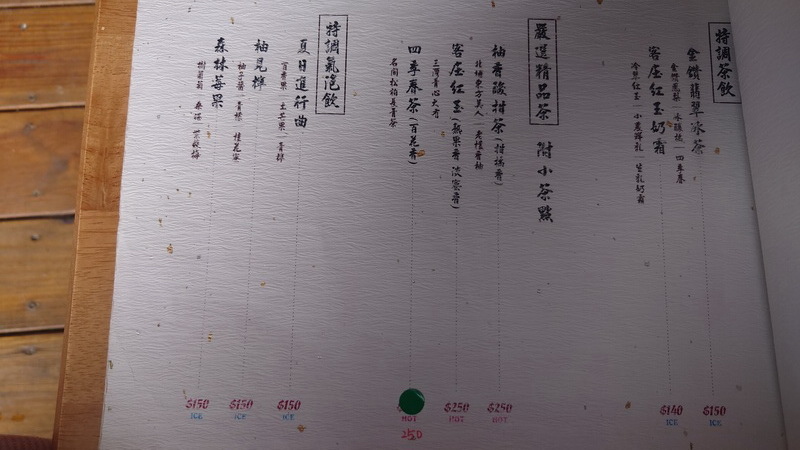 特調茶飲
金鑽翡翠冰茶
$150
ICE
客庄紅玉奶霜
冷萃紅玉 | 小農鮮乳 | 生乳奶霜
$140
ICE
嚴選精品茶 附小茶點
柚香酸柑茶(柑橘香)
北埔東方美人 | 老欉香柚
$250
HOT
客庄紅玉(熟果香 淡蜜香)
$250
HOT
四季春茶(百花香)
名間松柏長青茶
HOT
250
特調氣泡飲
夏日進行曲
百香果 | 土芒果 | 青檸
$150
ICE
柚見檸
柚子醬 | 青檸 | 桂花蜜
$150
ICE
森林莓果
$150
ICE